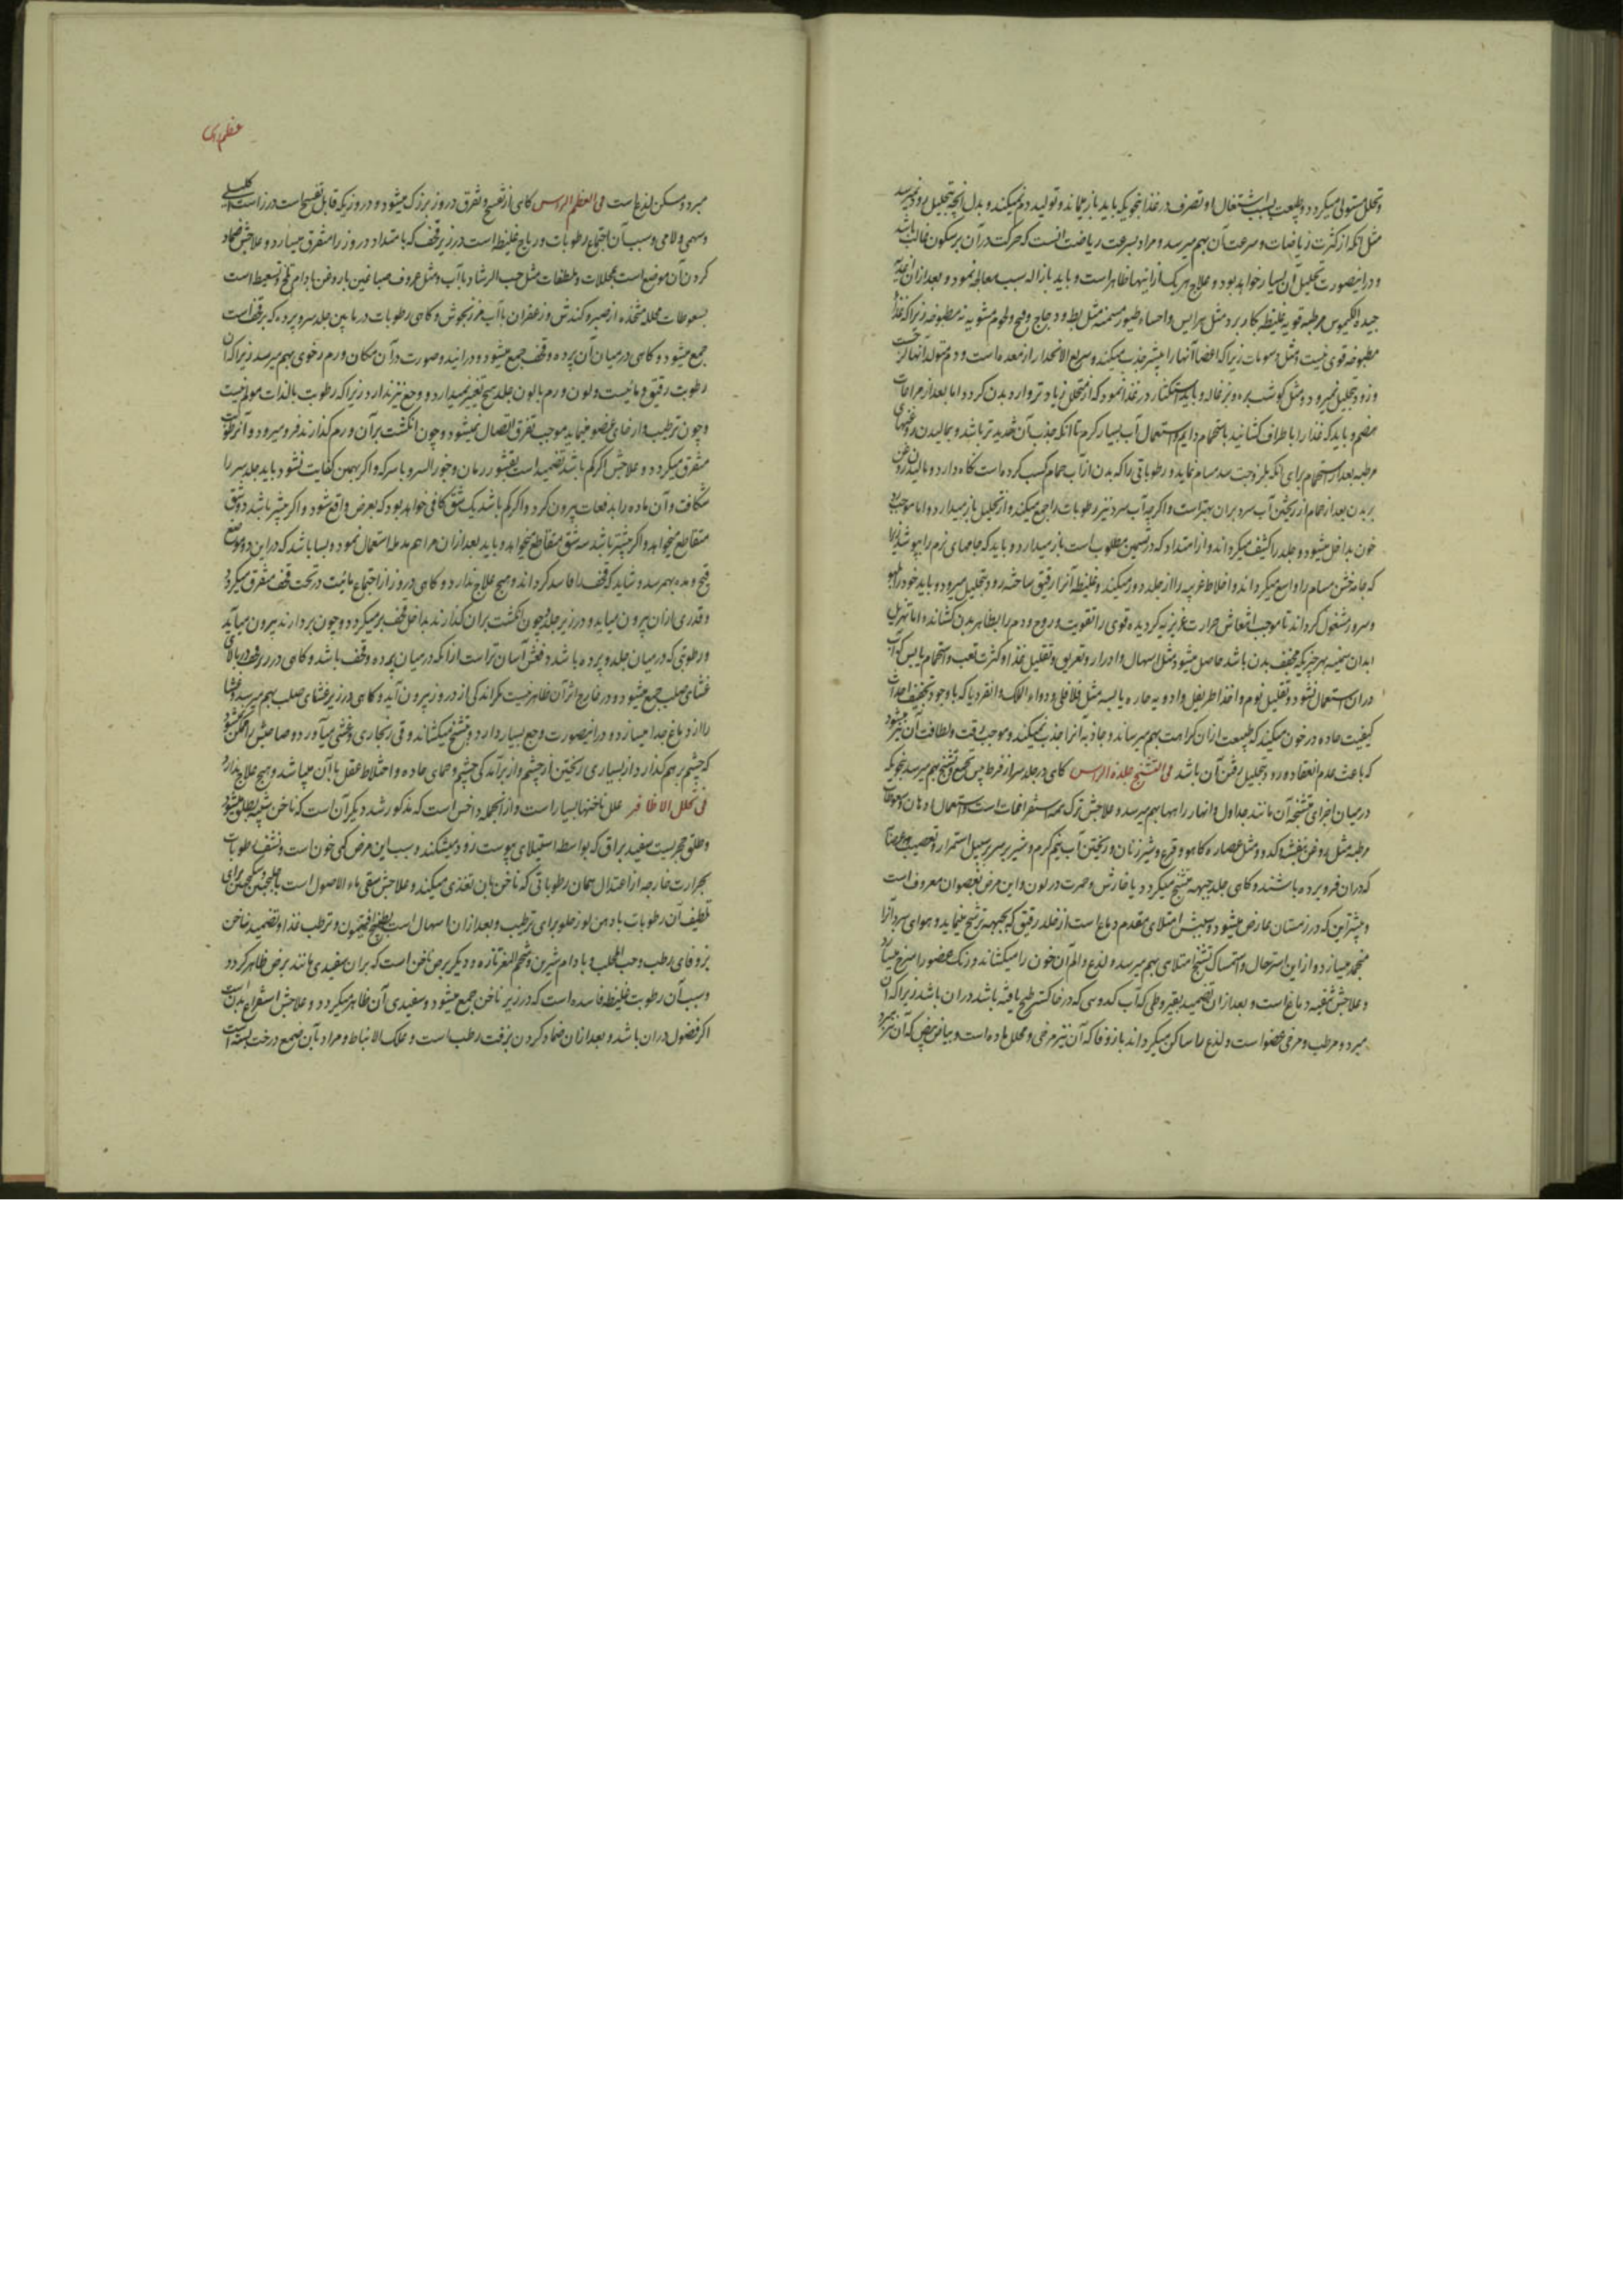 وتحلل مستولی میکردد و طبیعت بسبب اشتغال او تصرف در غذا بنحویکه باید باز میماند و تولید دم نمیکند و بدل آنچه بتحلیل رود نمیرسد
مثل آنکه از کثرت ریاضات و سرعت آن بهم میرسد و مراد بسرعت ریاضت آنست که حرکت در آن بر سکون غالب باشد
و در اینصورت تحلیل آن بسیار خواهد بود و علاج هر یک از اینها ظاهر است و باید بازاله سبب معالجه نمود و بعد از ان اغذیه
جیده الکیموس مرطبه قویه غلیظه بکار برد مثل هرایس و احساء و طیور مسمنه مثل بط و دجاج و لحوم مشویه نه مطبوخه زیرا که غذا
مطبوخه قوی نیست و مثل دسومات زیرا که اعضا آنها را بیشتر جذب میکند و سریع الانحدار از معده است و دم متولد از آنها لزجست
و زود بتحلیل نمیرود و مثل کوشت بره و بزغاله و باید استکثار در غذا نمود که از متحلل زیادتر وارد بدن کردد اما بعد از مراعات
هضم و باید که غذا را باطراف کشانید باستحمام دایم و استعمال آب بسیار کرم تا آنکه جذب آن شدیدتر باشد و بمالیدن روغنهای
مرطبه بعد از استحمام برای آنکه بلزوجت سد مسام نماید و رطوباتی را که بدن از آب حمام کسب کرده است نکاه دارد و مالیدن روغن
بر بدن بعد از حمام از ریختن آب سرد بران بهتر است و اکرچه آب سرد نیز رطوبات را جمع میکند و از تحلیل باز میدارد و اما موجب رد
خون بداخل میشود و جلد را کثیف میکرداند و از امتداد که در تسمین مطلوب است باز میدارد و باید که جامهای نرم را بپوشد زیرا
که جامه خشن مسام را واسع میکرداند و اخلاط غریبه را از جلد دور میکند و غلیظ آنرا رقیق ساخته رو بتحلیل میرود و باید خود را بلهو
و سرور مشغول کرداند تا موجب انتعاش حرارت غریزیه کردیده قوی را تقویت و روح و دم را بظاهر بدن کشاند و اما تهزیل
ابدان سمینه بهر چیزیکه مجفف بدن باشد حاصل میشود مثل اسهال و ادرار و تعریق و تقلیل غذا و کثرت تعب و استحمام یابس که آب
دران استعمال نشود و تقلیل نوم و اخذ اطریفل و ادویه حاره یابسه مثل فلافلی و دواء اللک و انقردیا که با وجود تجفیف احداث
کیفیت حاده در خون میکنند که طبیعت ازان کراهت بهم میرساند و جاذبه آنرا جذب نمیکند و موجب رقت و لطافت آن نیز میشود
که باعث عدم انعقاد و رو بتحلیل رفتن آن باشد فی التشنج جلدة الراس کاهی در جلد سر از فرط یبس تجمع و تشنج بهم میرسد بنحویکه
درمیان اجزای متشنجه آن مانند جداول و انهار راهها بهم میرسد و علاجش ترک همه استفراغات است و استعمال ادهان و سعوطات
مرطبه مثل روغن بنفشه و کدو و مثل عصاره کاهو و قرع و شیر زنان و ریختن آب نیم کرم و شیر بر سر بر سبیل استمرار و تعصیب بعصابه
که دران فرو برده باشند و کاهی جلد جبهه متشنج میکردد با خارش و حمرت در لون و این مرض بغصوان معروف است
و بیشتر این که در زمستان عارض میشود و سببش امتلای مقدم دماغ است از خلط رقیق که بجبهه ترشح مینماید و هوای سرد آنرا
منجمد میسازد و از این استرحال و استمساک تشنج امتلای بهم میرسد و لذع و الم آن خون را میکشاند و رنک عضو را سرخ میسازد
و علاجش تنقیه دماغ است و بعد از ان تضمید بقیروطی که آب کدوسی که در خاکستر طبخ یافته باشد دران باشد زیرا که آن
مبرد و مرطب و مرخی عضو است و لذع را ساکن میکرداند با زوفا که آن نیز مرخی و محلل ماده است و بیاض بیض که آن نیز مبرد
عظم راس
مبرد و مسکن لذع است فی العظم الراس کاهی از تفسخ و تفرق دروز بزرک میشود و دروزیکه قابل تفسخ است درز است اکلیلی
و سهمی و لامی و سبب آن اجتماع رطوبات و ریاح غلیظ است در زیر قحف که بامتداد دروز را متفرق میسازد و علاجش ضماد
کردن آن موضع است بمحللات و ملطفات مثل حب الرشاد با آب و مثل عروف صباغین با روغن بادام تلخ و تسعیط است
بسعوطات محلله متخذه از صبر و کندش و زعفران با آب مرزنجوش و کاهی رطوبات در مابین جلد سر و پرده که بر قحف است
جمع میشود و کاهی درمیان آن پرده و قحف جمع میشود و در انید و صورت در آن مکان ورم رخوی بهم میرسد زیرا که آن
رطوبت رقیق و مائیست و لون ورم بالون جلد هیچ تغییر نمیدارد و وجع نیز ندارد زیرا که رطوبت بالذات مولم نیست
و چون ترطیب و ارخای عضو مینماید موجب تفرق اتصال نمیشود و چون انکشت بر آن ورم کذارند فرو میرود و آن رطوبت
متفرق میکردد و علاجش اکر کم باشد تضمید است بقشور رمان و جوز السرو با سرکه و اکر بهمین کفایت نشود باید جلد سر را
شکافت و آن ماده را بدفعات بیرون کرد و اکر کم باشد یک شق کافی خواهد بود که بعرض واقع شود و اکر بیشتر باشد دو شق
متقاطع میخواهد و اکر بیشتر باشد سه شق متقاطع میخواهد و باید بعد از ان مراهم مدمله استعمال نمود و بسا باشد که در این دو موضع
قیح و مده بهم رسد و شاید که قحف را فاسد کرداند و هیچ علاج ندارد و کاهی دروز از اجتماع مائیت در تحت قحف متفرق میکردد
و قدری ازان بیرون میاید و در زیر جلد و چون انکشت بران کذارند بداخل قحف بر میکردد و چون بردارند بیرون میاید
و رطوبتی که درمیان جلد و پرده باشد دفعش آسان تر است ازانکه درمیان پرده و قحف باشد و کاهی در زیر قحف در بالای
غشای صلب جمع میشود و در خارج اثر آن ظاهر نیست مکر اندکی از دروز بیرون آید و کاهی در زیر غشای صلب بهم میرسد و غشا
را از دماغ جدا میسازد و در اینصورت وجع بسیار دارد و بتشنج میکشاند و قی زنجاری و غشی میآورد و صاحبش را ممکن نشود
که چشم بر هم کذارد از بسیاری ریختن از چشم و از برآمدکی چشم و حمای حاده و اختلاط عقل با آن میباشد و هیچ علاج ندارد
فی علل الاظافر علل ناخنها بسیار است و از آنجمله داخس است که مذکور شد دیکر آن است که ناخن شبیه بطلق میشود
و طلق حجریست سفید براق که بواسطه استیلای یبوست زود میشکند و سبب این مرض کمی خون است و نشف رطوبات
بحرارت خارجه از اعتدال همان رطوباتی که ناخن بان تغذی میکند و علاجش سقی ماء الاصول است با سکنجبین برای
تلطیف آن رطوبات با دهن لوز حلو برای ترطیب و بعد از ان اسهال است بطبیخ افتیمون و ترطیب غذا و تضمید ناخن
بزوفای رطب و حب المحلب و بادام شیرین و شحم البقر تازه و دیکر برص ناخن است که بران سفیدی مانند برص ظاهر کردد
و سبب آن رطوبت غلیظه فاسده است که در زیر ناخن جمع میشود و سفیدی آن ظاهر میکردد و علاجش استفراغ بدن است
اکر فضول دران باشد و بعد از ان ضماد کردن بزفت رطب است و علک الانباط و مراد بآن صمغ درخت بسته است